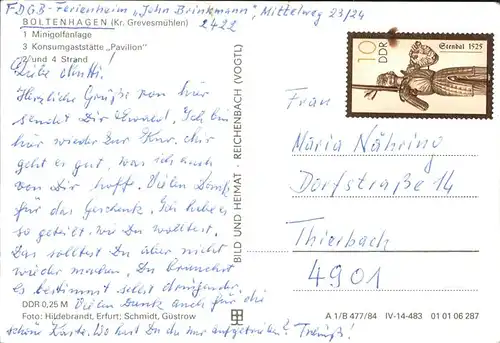 FDGB-Ferienheim "John Brinkmann", Mittelweg 23/24
BOLTENHAGEN (Kr. Grevesmühlen) 2422
1 Minigolfanlage
3 Konsumgaststätte „Pavillon"
2 und 4 Strand
Liebe Mutti!
Herzliche Grüße von hier
sendet Dir Ewald. Ich bin
hier wieder zur Kur. Mir
geht es gut, was ich auch
von Dir hoffe. Vielen Dank
für das Geschenk. Ich habe es
so geteilt wie Du wolltest.
Das solltest Du aber nicht
wieder machen. Du brauchst
es bestimmt selst dringender.
Vielen Dank auch für die
schöne Karte. Wo hast Du die nur aufgetrieben? Tschüß!
DDR 0,25 M
Foto: Hildebrandt, Erfurt; Schmidt, Güstrow
BILD UND HEIMAT · REICHENBACH (VOGTL)
10
DDR
Stendal 1525
Frau
Maria Nähring
Dorfstraße 14
Thierbach
4901
A 1/B 477/84 IV-14-483 01 01 06 287